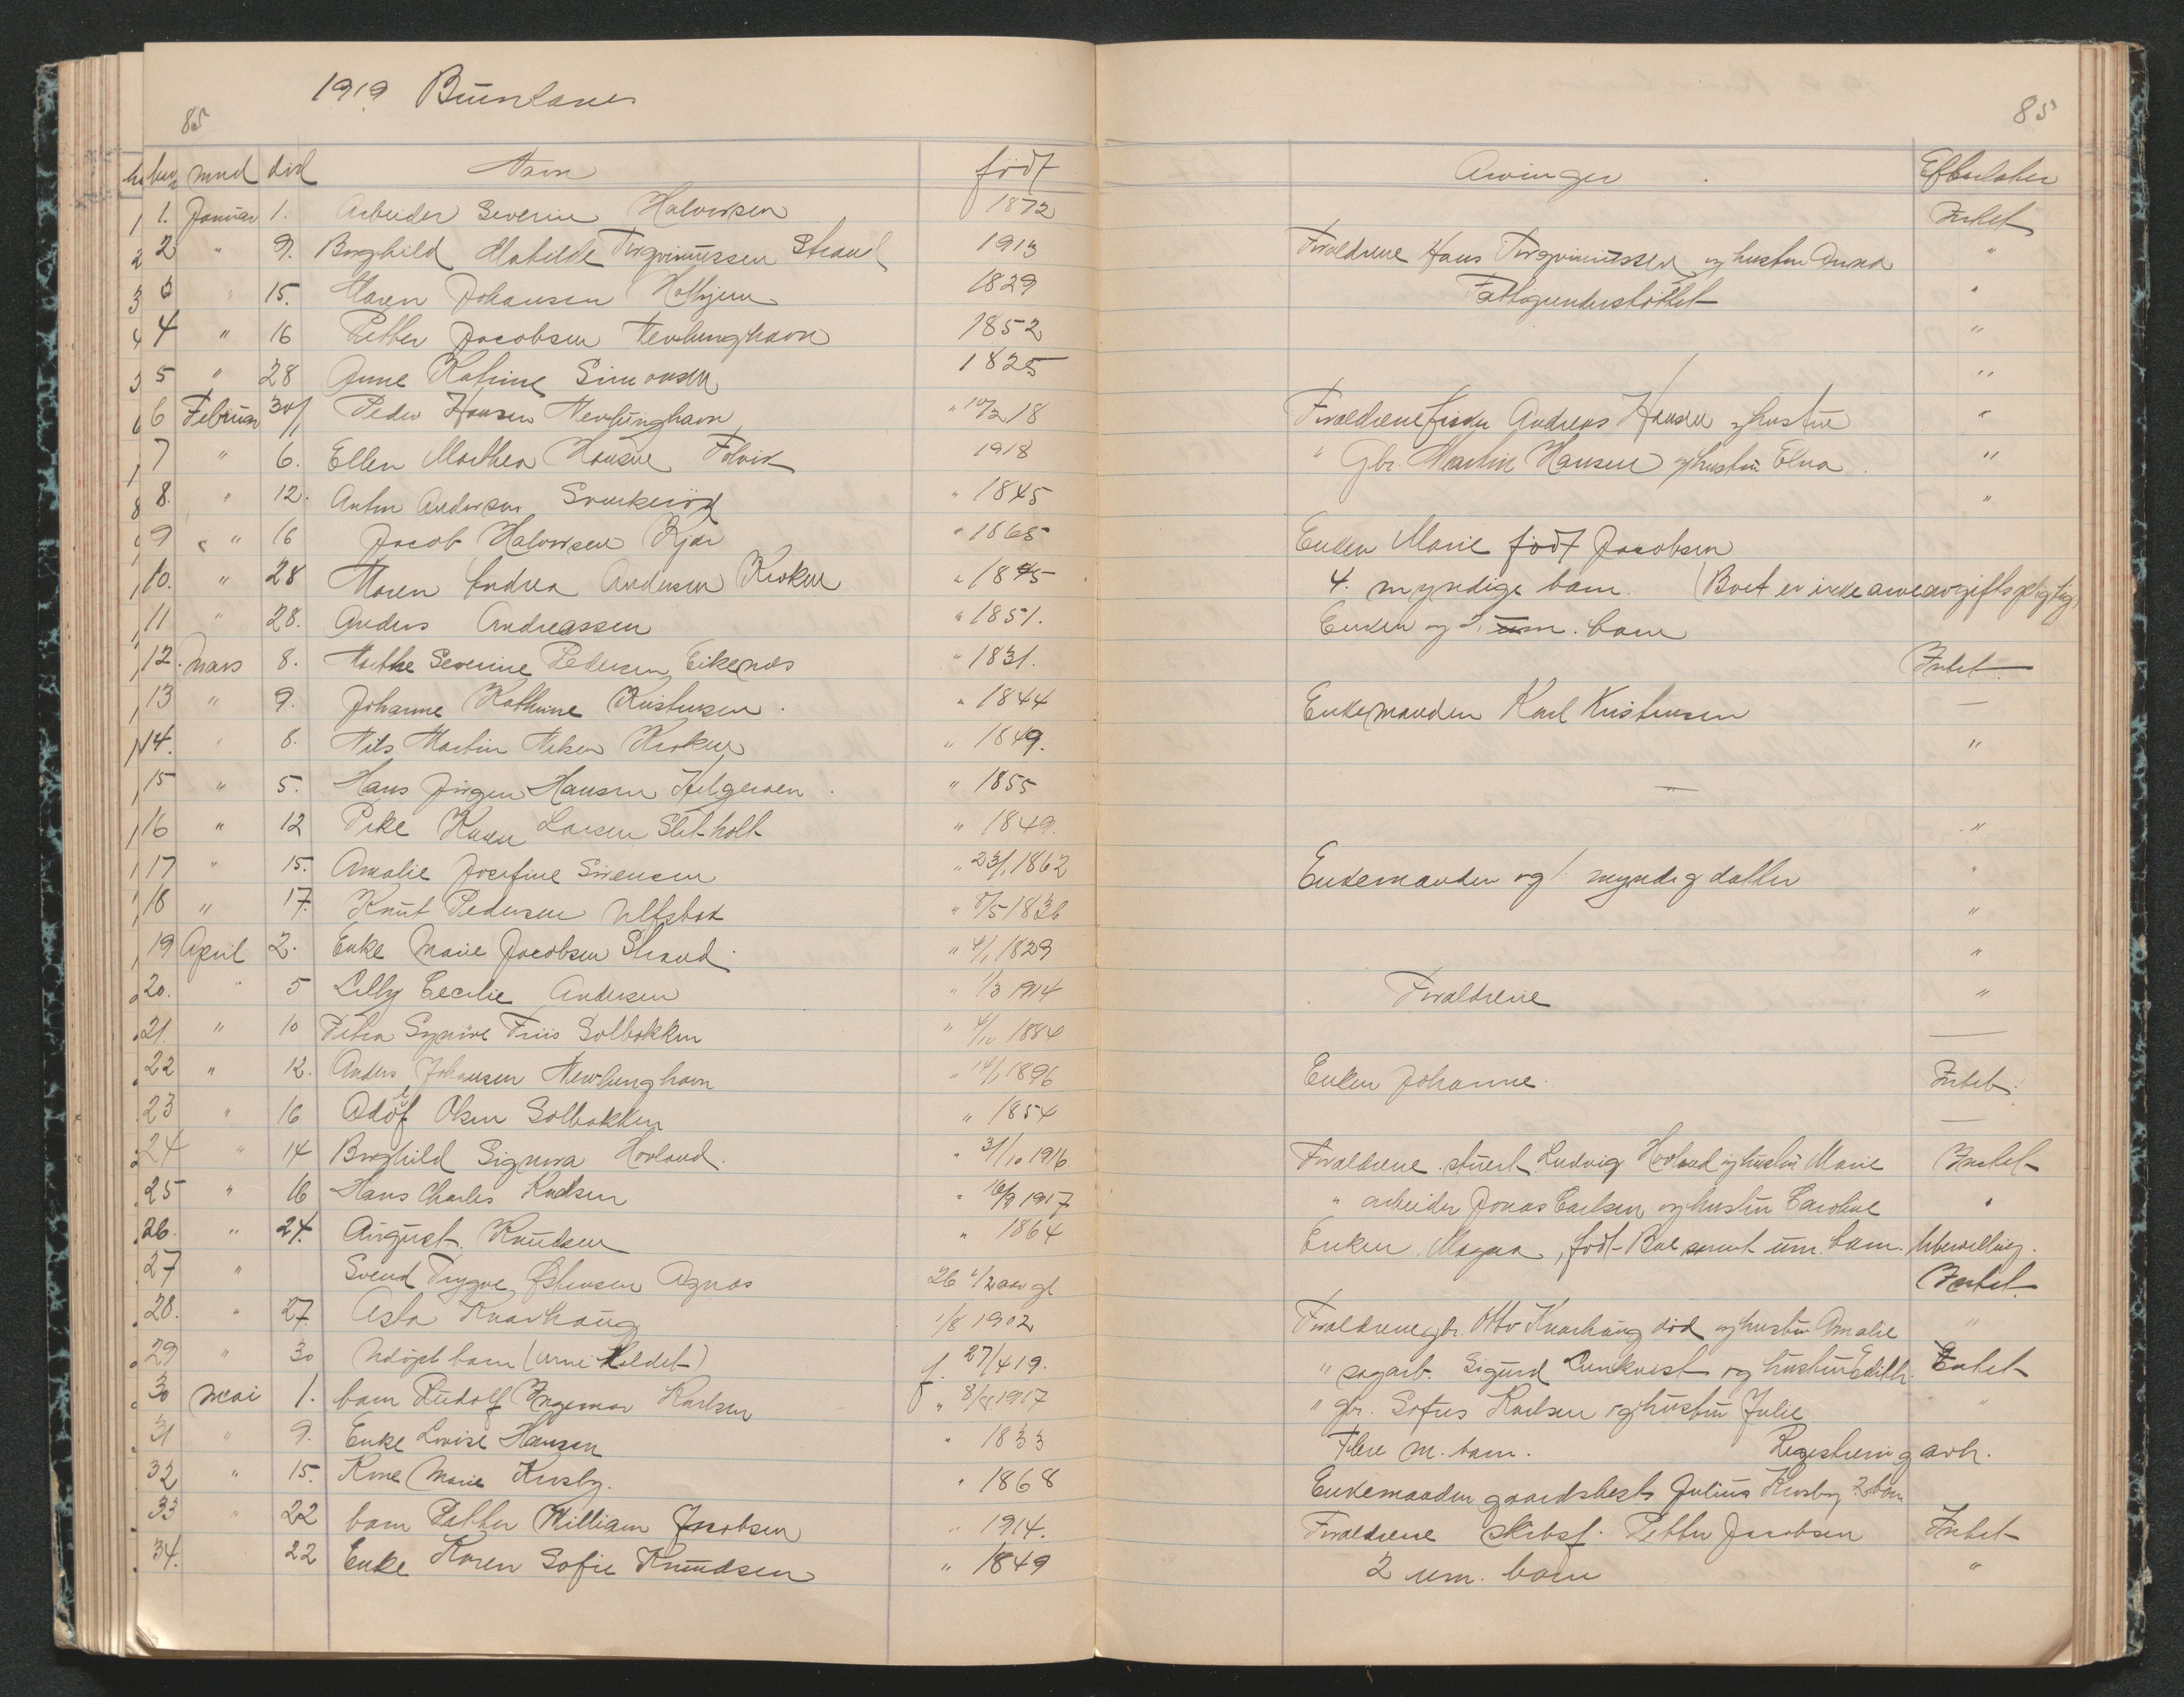 1919 Brunlanes
85
85
mnd död Navn födt Arvinger Efterlater
1 1. Januar 1. Arbeider Severin Halvorsen 1872 Intet
2 2 " 9. Borghild Matilde Torgrimussen Strand 1913 Forældrene Hans Torgrimussen og hustru Anna "
3 3 " 15. Maren Johansen Holtijern 1829 Fattigunderstöttet "
4 4 " 16 Petter Jacobsen Nevlunghavn 1852 "
5 5 " 28 Anne Katrine Simonsen 1825 "
6 6 Februar 30/1 Peder Hansen Nevlunghavn " 10/2 18 Forældrene fisker Andreas Hansen og hustru "
7 " 6. Ellen Marthea Hansen Folvik 1918 " Gbr. Martin Hansen og hustru Elna "
8 8. " 12. Anton Andersen " 1845 "
9 " 16 Jacob Halvorsen Kjær " 1865 Enken Marie födt Jacobsen
10. " 28 Maren Andrea Andersen Kroken " 1845 4. myndige barn. (Boet er ikke arveavgiftspligtig)
11 " 28. Anders Andreassen " 1851. Enken og 2 um. barn
12. Mars 8. Marthe Severine Pedersen Eikenæs " 1831. Intet
13 " 9. Johanne Kathrine Kristensen. " 1844 Enkemanden Karl Kristensen —
14. " 8. Nils Martin Nilsen Kroken " 1849. "
15 " 5. Hans Jörgen Hansen Helgeroen. " 1855 —
16 " 12 Pike Karen Larsen Sletholt " 1849. "
17 " 15. Amalie Josefine Sörensen " 23/1 1862 Enkemanden og 1 myndig datter "
18 " 17. Knut Pedersen Ulfsbak " 8/5 1836 "
19 April 2. Enke Marie Jacobsen Strand. " 4/1 1829 "
20. " 5 Lilly Cecilie Andersen " 1/3 1914 Forældrene "
21. " 10 Petra Synöve Friis Solbakken " 4/10 1884 —
22 " 12. Anders Johansen Nevlunghavn " 14/1 1896 Enken Johanne. Intet.
23 " 16 Adolf Olsen Solbakken " 1854 —
24 " 14 Borghild Signora Hovland. " 31/10 1916 Forældrene stuert Ludvig Hovland og hustru Marie Intet
25 " 16 Hans Charles Karlsen " 16/9 1917 " arbeider Jonas Carlsen og hustru Caroline "
26. " 24. August Knudsen " 1864 Enken Magna, födt Boe samt um. barn. Ubevilling.
27 " Svend Trygve Östensen Agnæs 26 1/2 aar gl Intet.
28. " 27. Asta Knarhaug 1/8 1902 Forældrene gbr. Otto Knarhaug död og hustru Amalie "
29 " 30 Udöpt barn (Arne kaldet) f. 27/4 19. " sagarb. Sigurd Lunkvist og hustru Edith. Intet
30 Mai 1. barn Rudolf Ingemar Karlsen " 8/8 1917 " gbr. Sofus Karlsen og hustru Julie "
31 " 9. Enke Lovise Hansen " 1833 Flere m. barn. Registrering avh.
32 " 15. Kone Marie Krosby. " 1868 Enkemanden gaardsbest. Julius Krosby 2 barn
33 " 22 barn Petter William Jacobsen " 1914. Forældrene skibsf. Petter Jacobsen Intet
34. 22 Enke Karen Sofie Knudsen " 1849 2 um. barn "